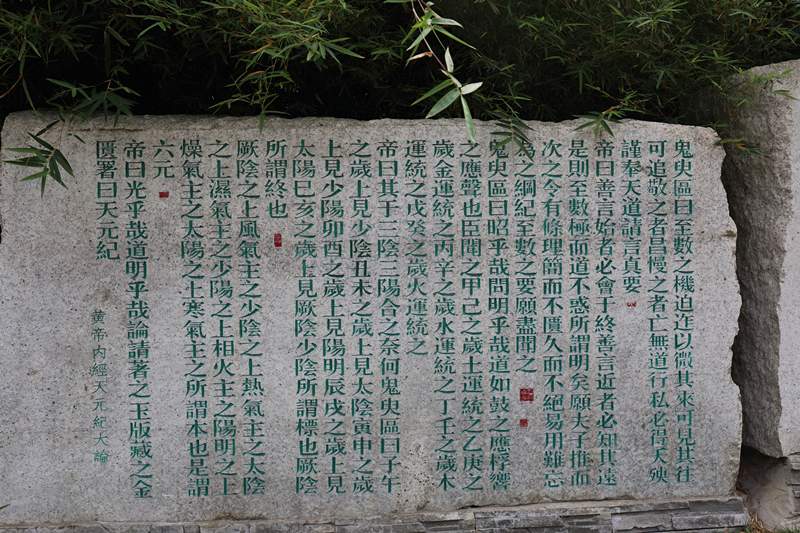 鬼臾區曰至數之機迫迮以微其來可見其往
可追敬之者昌慢之者亡無道行私必得天殃
謹奉天道請言真要
帝曰善言始者必會于終善言近者必知其遠
是則至數極而道不惑所謂明矣願夫子推而
次之令有條理簡而不匱久而不絕易用難忘
為之綱紀至數之要願盡聞之
鬼臾區曰昭乎哉問明乎哉道如鼓之應桴響
之應聲也臣聞之甲己之歲土運統之乙庚之
歲金運統之丙辛之歲水運統之丁壬之歲木
運統之戊癸之歲火運統之
帝曰其于三陰三陽合之奈何鬼臾區曰子午
之歲上見少陰丑未之歲上見太陰寅申之歲
上見少陽卯酉之歲上見陽明辰戌之歲上見
太陽巳亥之歲上見厥陰少陰所謂標也厥陰
所謂終也
厥陰之上風氣主之少陰之上熱氣主之太陰
之上濕氣主之少陽之上相火主之陽明之上
燥氣主之太陽之上寒氣主之所謂本也是謂
六元
帝曰光乎哉道明乎哉論請著之玉版藏之金
匱署曰天元紀
黃帝內經天元紀大論